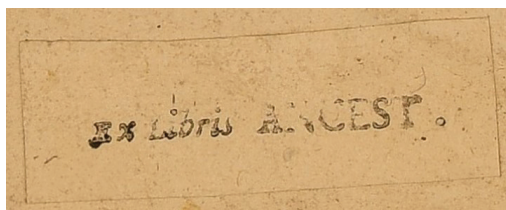 Ex Libris ANCEST.